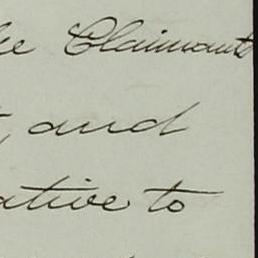 he Claimant
, and
ative to